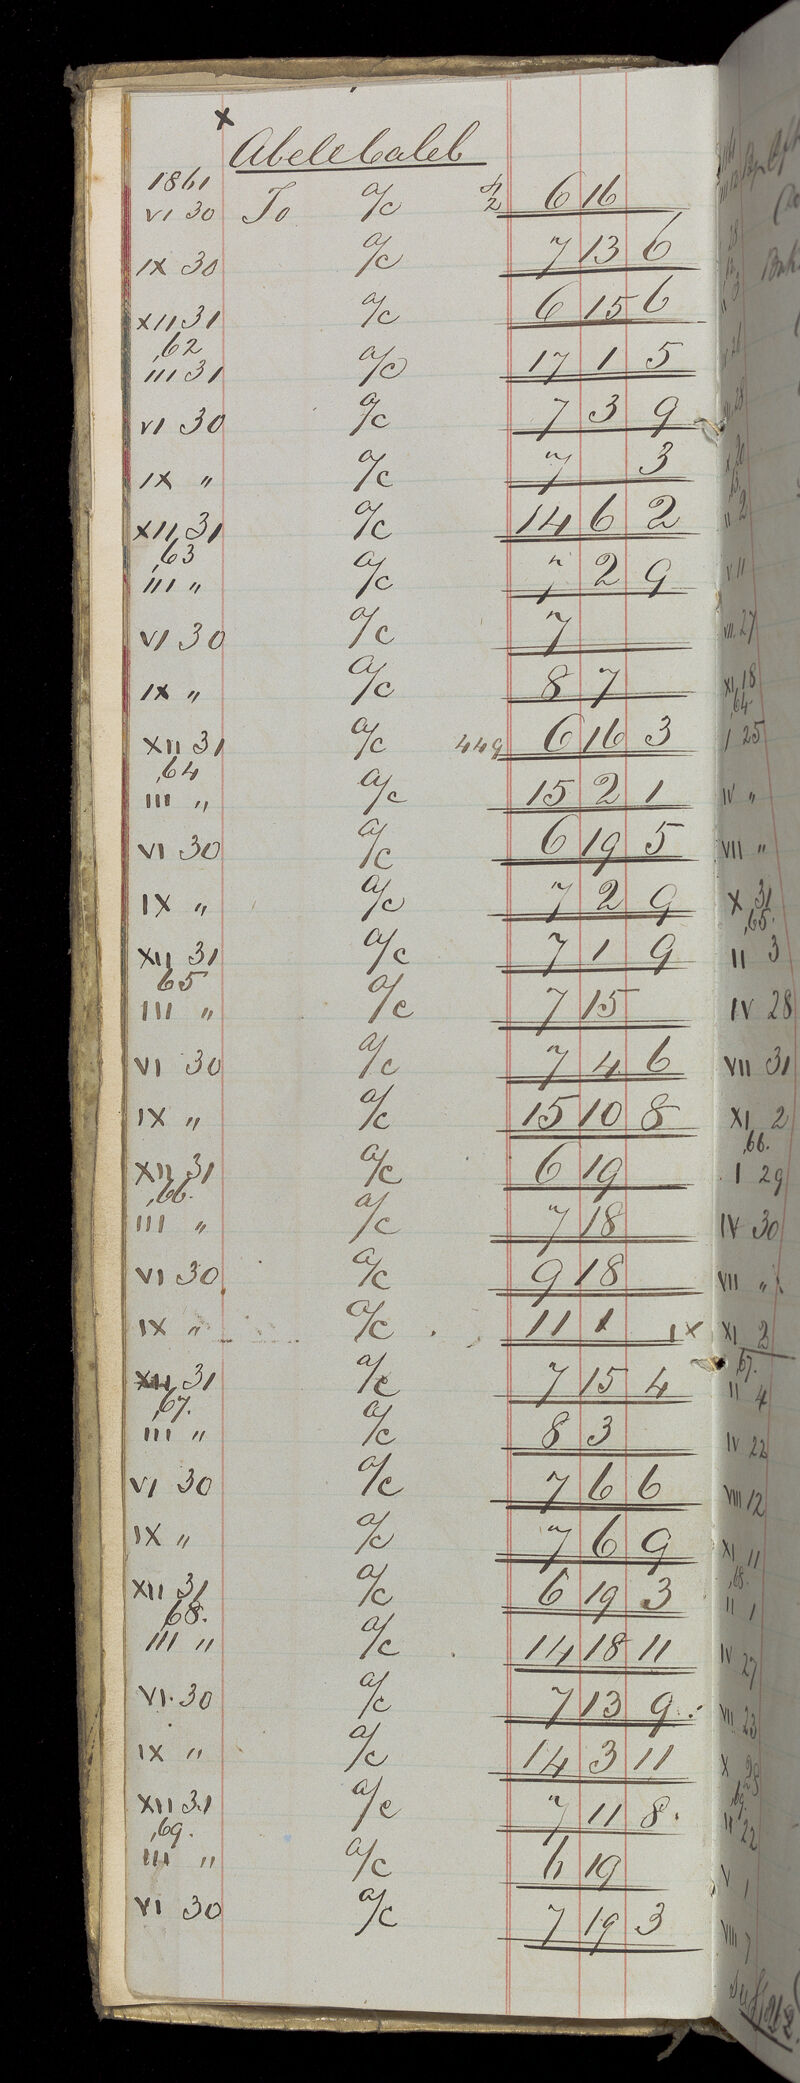 x
Abele Caleb
1861
VI 30 To a/c 6 16
IX 30 a/c 7 13 6
XII 31 a/c 6 15 6
,62
III 31 a/c 17 1 5
VI 30 a/c 7 3 9
IX " a/c 7 3
XII 31 a/c 14 6 2
,63
III " a/c 7 2 9
VI 30 a/c 7
IX " a/c 8 7
XII 31 a/c 449 6 16 3
,64
III " a/c 15 2 1
VI 30 a/c 6 19 5
IX " a/c 7 2 9
XII 31 a/c 7 1 9
65
III " a/c 7 15
VI 30 a/c 7 4 6
IX " a/c 15 10 8
XII 31 a/c 6 19
,66.
III " a/c 7 18
VI 30 a/c 9 18
IX " a/c 11 1 1 x
XII 31 a/c 7 15 4
,67.
III " a/c 8 3
VI 30 a/c 7 6 6
IX " a/c 7 6 9
XII 31 a/c 6 19 3
68.
III " a/c 14 18 11
VI. 30 a/c 7 13 9
IX " a/c 14 3 11
XII 31 a/c 7 11 8.
,69.
III " a/c 6 19
VI 30 a/c 7 19 3
VII 27
XI 18
,64
I 25
IV "
VII "
X 31
,65.
II 3
IV 28
VII 31
XI 2
,66.
I 29
IV 30
VII "
XI 2
,67.
II 4
IV 22
VIII 12
XI 11
II 1
IV 27
VII 23
X 28
,69.
II 22
V 1
VIII 7